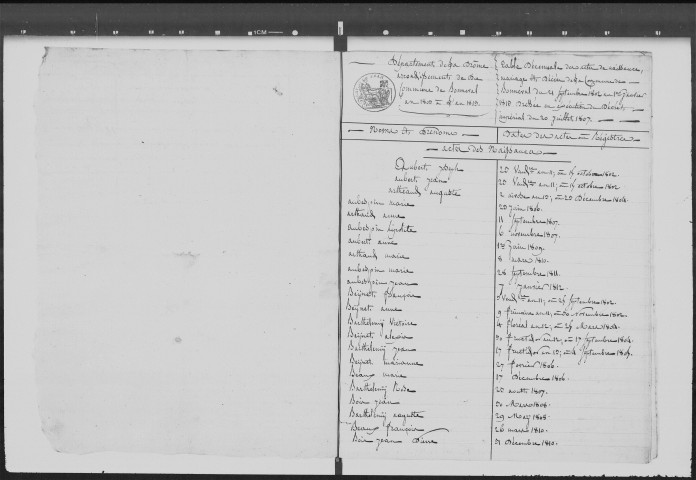 1CM
Département de la Drôme
arrondissement de Die
Commune de Bonneval
en 1810
Table Décennale des actes de naissance,
mariage et Décès de la Commune de
Bonneval du 21 septembre 1802 au 1er Janvier
1813 Dressée en exécution du Décret
impérial du 20 Juillet 1807.
Noms et Prénoms
Dates des actes au Registre
actes des Naissances
aubert
20 Vend.re an 11; 1802.
aubert jean
20 Vend.re an 11; octobre 1802.
arthaud auguste
2 an 13; 23 Décembre 1804.
aubespin marie
20 juin 1806.
arthaud anne
11 Septembre 1807.
aubespin hipolite
6 novembre 1807.
aubert anne
1er Juin 1809.
arthaud marie
8 mars 1810.
aubespin marie
28 Septembre 1811.
aubespin jean
7 Janvier 1812.
Beynet françois
Vend.re an 11; Septembre 1802.
Beynet anne
9 frimaire an 11, 30 novembre 1802.
Barthelemy Victoire
4 floréal an 12; 24 1804.
Beynet alexis
30 fructidor an 12; 17 Septembre 1804.
Barthelemy jean
17 fructidor an 13; 4 Septembre 1805.
Beynet marianne
27 fevrier 1806.
Beaux marie
17 Décembre 1806.
Barthelemy Rose
20 août 1807.
Boin jean
30 Mars 1808.
Barthelemy auguste
29 May 1808.
Beaux françois
26 mars 1810.
Boin jean Pierre
31 Décembre 1810.